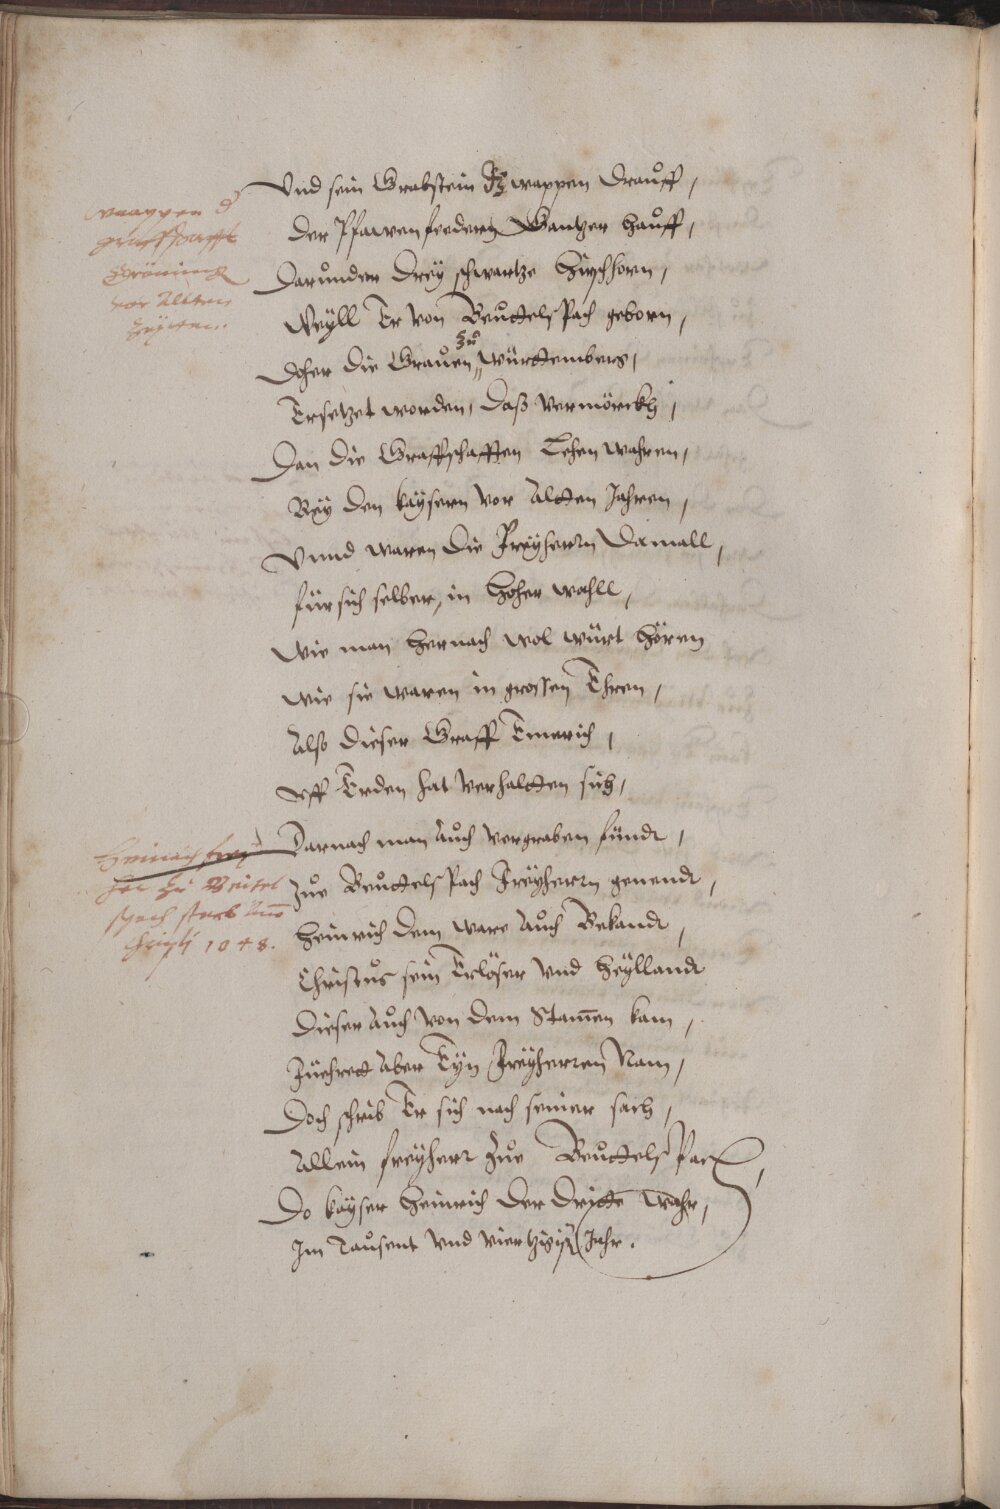 Vnd sein Grabstein wappen drauff,
Der Pfawen feedern Gantzer hauff,
Darunder drey schwartze Hirschhorn,
Weyll Er von Beuttelspach geborn,
Doher die Grauen zu Württemberg,
Ersetzet worden, daß vermörckh,
Dan die Graffschafften Lehen wahren,
Bey den kaysern vor Altten Jahren,
Vnnd waren die Freyherrn damall,
für sich selber, in Hoher wahll,
Wie man Hernach wol würt Hören
Wie sie waren in grossen Ehren,
Also dieser Graff Emerich,
vff Erden hat verhaltten sich,
Darnach man Auch vergraben fündt,
Zue Beuttelspach Freyherrn genendt,
Heinrich dem ware Auch Bekandt,
Christus sein Erlöser vnd Heyllandt
Dieser Auch von dem Stam̄en kam,
Füehrett Aber Eyn Freyherren Nam,
Doch schrib Er sich nach seiner sach,
Allein freyherr zue Beuttelspach,
Do kayser Heinrich der dritte wahr,
Im Tausent vnd viertzigist Jahr.
wappen d
graffschafft
Gröning
vor Alten
Zeyten.
Heinrich frey
her zu Beutel
spach starb Ano
Christi 1048.